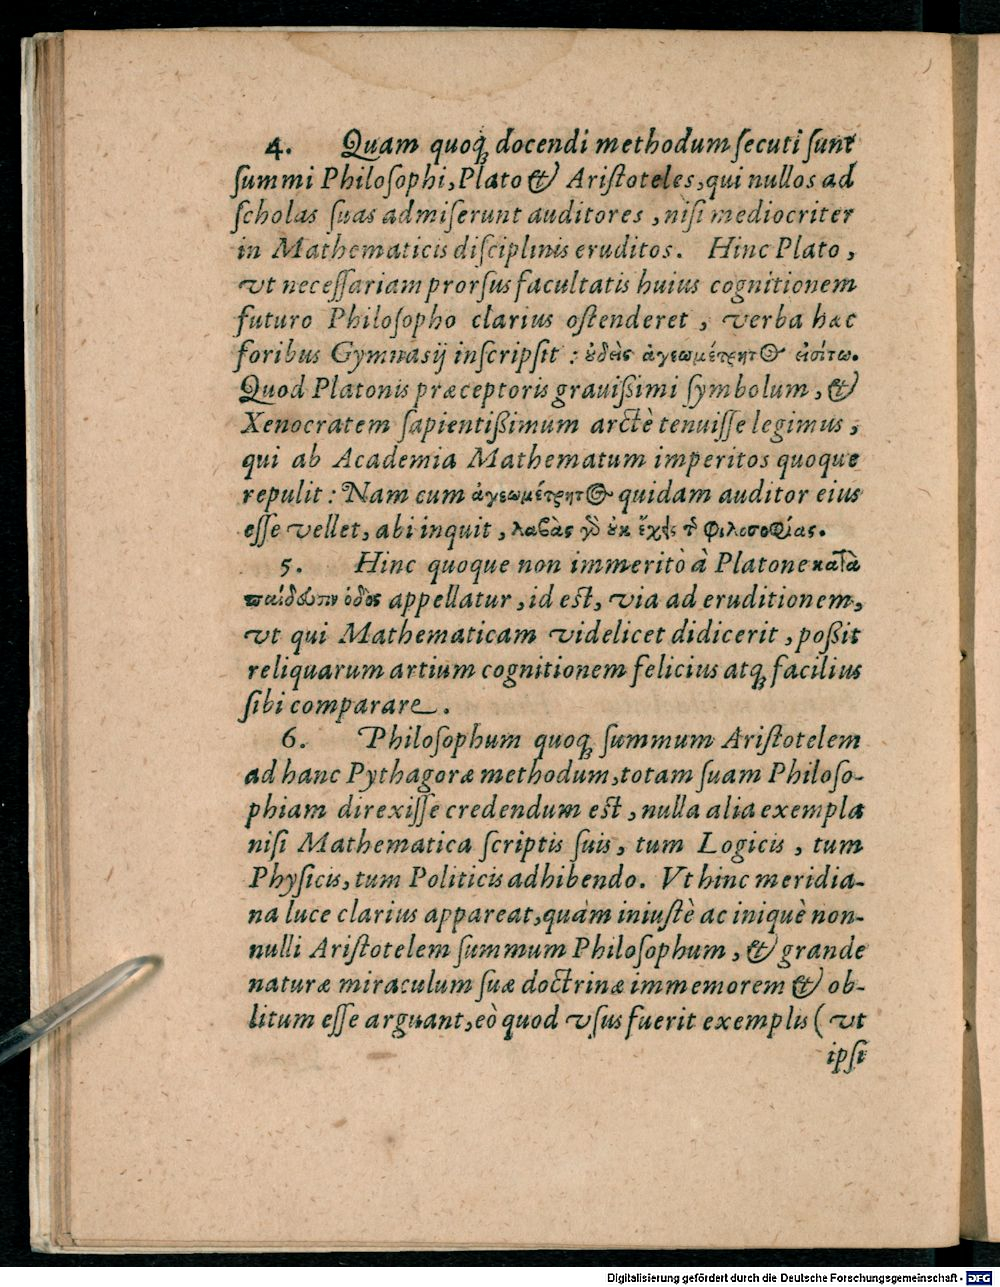 4. Quam quoq; docendi methodum ſecuti ſunt
ſummi Philoſophi, Plato & Ariſtoteles, qui nullos ad
ſcholas ſuas admiſerunt auditores, niſi mediocriter
in Mathematicis diſciplinis eruditos. Hinc Plato,
vt neceſſariam prorſus facultatis huius cognitionem
futuro Philoſopho clarius oſtenderet, verba hæc
foribus Gymnasij inſcripſit: ȣ̓δεὶς ἀγεωμέτρητος εἰσίτω.
Quod Platonis præceptoris grauißimi ſymbolum, &
Xenocratem ſapientißimum arctè tenuiſſe legimus,
qui ab Academia Mathematum imperitos quoque
repulit: Nam cum ἀγεωμέτρητος quidam auditor eius
eſſe vellet, abi inquit, λαβὰς γὸ ȣ̓κ ἔχεις τ̃ φιλοσοφίας.
5. Hinc quoque non immeritò à Platone κατὰ
παίδευσιν ὁδὸς appellatur, id eſt, via ad eruditionem,
vt qui Mathematicam videlicet didicerit, poßit
reliquarum artium cognitionem felicius atq; facilius
ſibi comparare.
6. Philoſophum quoq; ſummum Ariſtotelem
ad hanc Pythagoræ methodum, totam ſuam Philoſo-
phiam direxiſſe credendum eſt, nulla alia exempla
niſi Mathematica ſcriptis ſuis, tum Logicis, tum
Phyſicis, tum Politicis adhibendo. Vt hinc meridia-
na luce clarius appareat, quàm iniuſtè ac iniquè non-
nulli Ariſtotelem ſummum Philoſophum, & grande
naturæ miraculum ſuæ doctrinæ immemorem & ob-
litum eſſe arguant, eò quod vſus fuerit exemplis (vt
ipſi
Digitalisierung gefördert durch die Deutsche Forschungsgemeinschaft - DFG